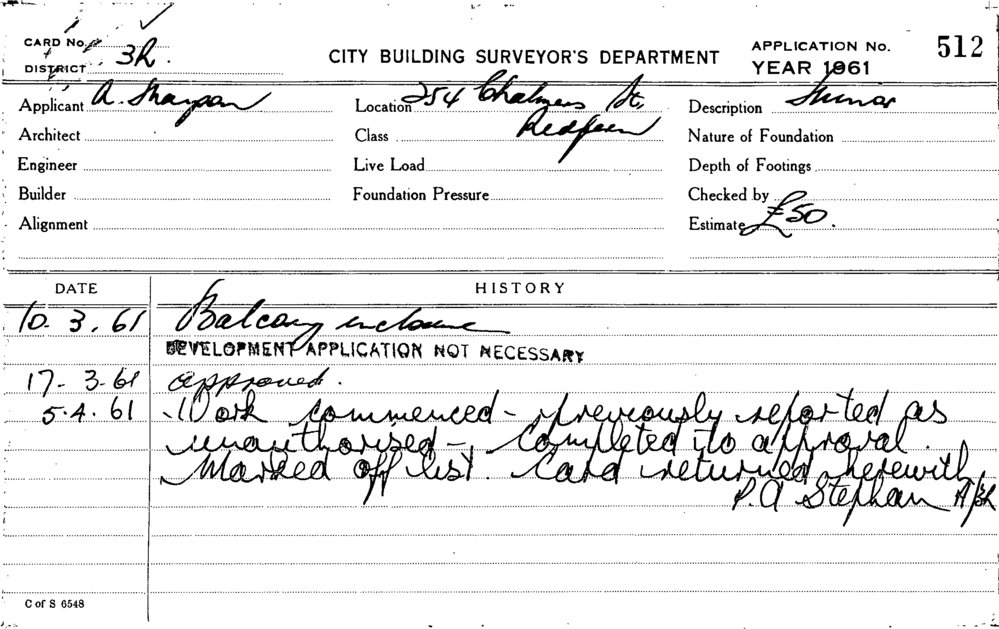 CARD No.
DISTRICT 3R.
CITY BUILDING SURVEYOR'S DEPARTMENT
APPLICATION No. 512
YEAR 1961
Applicant A.
Location 254 Chalmers St,
Redfern
Description
Architect
Class
Nature of Foundation
Engineer
Live Load
Depth of Footings
Builder
Foundation Pressure
Checked by
Alignment
Estimate £50.
DATE
HISTORY
10.3.61 Balcony enclosure
DEVELOPMENT APPLICATION NOT NECESSARY
17-3-61 approved.
5.4.61 Work commenced - previously reported as
unauthorised - completed to approval.
Marked off list. Card returned herewith
P.A Stephan
C of S 6548